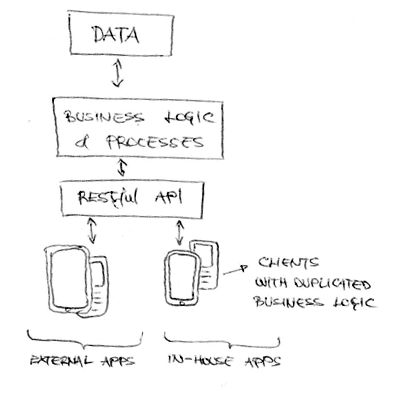 DATA
BUSINESS LOGIC
& PROCESSES
RESTful API
CLIENTS
WITH DUPLICATED
BUSINESS LOGIC
EXTERNAL APPS
IN-HOUSE APPS